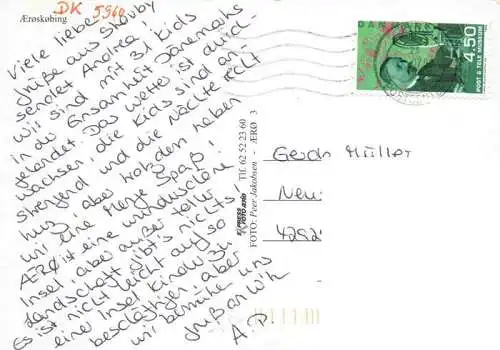 Ærøskøbing
DK 5960
Viele liebe
Grüße aus Skovby
sendet Andrea!
Wir sind mit 31 Kids
in der Einsamkeit Dänemarks
gelandet. Das Wetter ist durch-
wachsen, die Kids an-
strengend und die Nächte recht
kurz, aber trotzdem haben
wir eine Menge Spaß!
ÆRØ ist eine wunderschöne
Insel, aber außer toller
Landschaft gibt's nichts!
Es ist nicht leicht auf so
einer Insel Kinder zu
beschäftigen, aber
wir bemühen uns
A.P.
Tlf. 62 52 23 60
EXPRESS
FOTO ÆRØ
FOTO: Peer Jakobsen - ÆRØ 3
DANMARK
4.50
POST & TELE MUSEUM
Gerdr. Müller
Neu